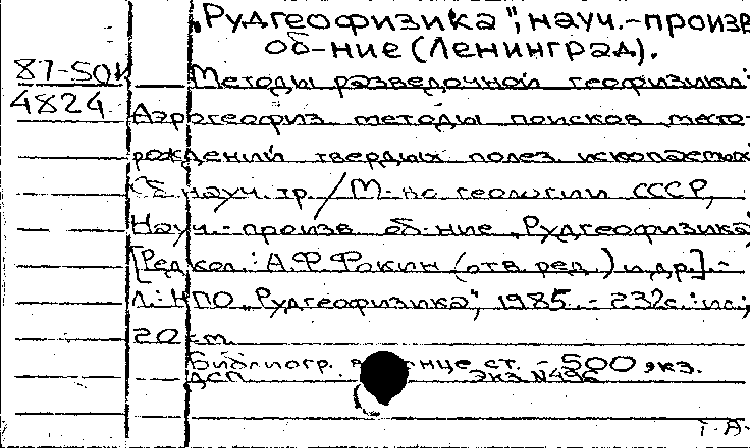 „Рудгеофизика", науч.-произв
об-ние (Ленинград).
87-50И
Методы разведочной геофизики:
4824
Аэрогеофиз методы поисков место-
рождений твердых полез. ископаемых
Сб науч. тр. / М-во геологии СССР,
Науч.-произв. об-ние „Рудгеофизика
[Редкол.: А.Ф Фокин (отв ред.) и др.].-
Л.: НПО „Рудгеофизика", 1985. - 232с.: ил.;
20 см.
Библиогр. в конце ст. - 500 экз.
ДСП. Экз N496